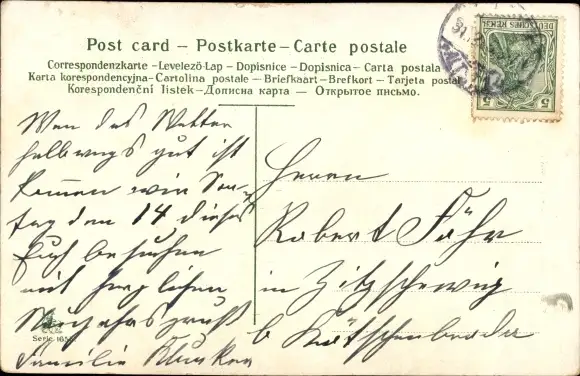 Post card – Postkarte – Carte postale
Correspondenzkarte – Levelező-Lap – Dopisnice – Dopisnica – Carta postala
Karta korespondencyjna – Cartolina postale – Briefkaart – Brefkort – Tarjeta postal
Korespondenční lístek – Дописна карта – Открытое письмо.
DEUTSCHES REICH
5 5
Wen das Wetter
halbwegs gut ist
kommen wir Son-
tag den 14 dieses
Euch besuchen
mit herzlichen
Neujahrsgruß
Familie
Herrn
Robert Föhr
in Zitzschewig
b Kötzschenbroda
Serie 165